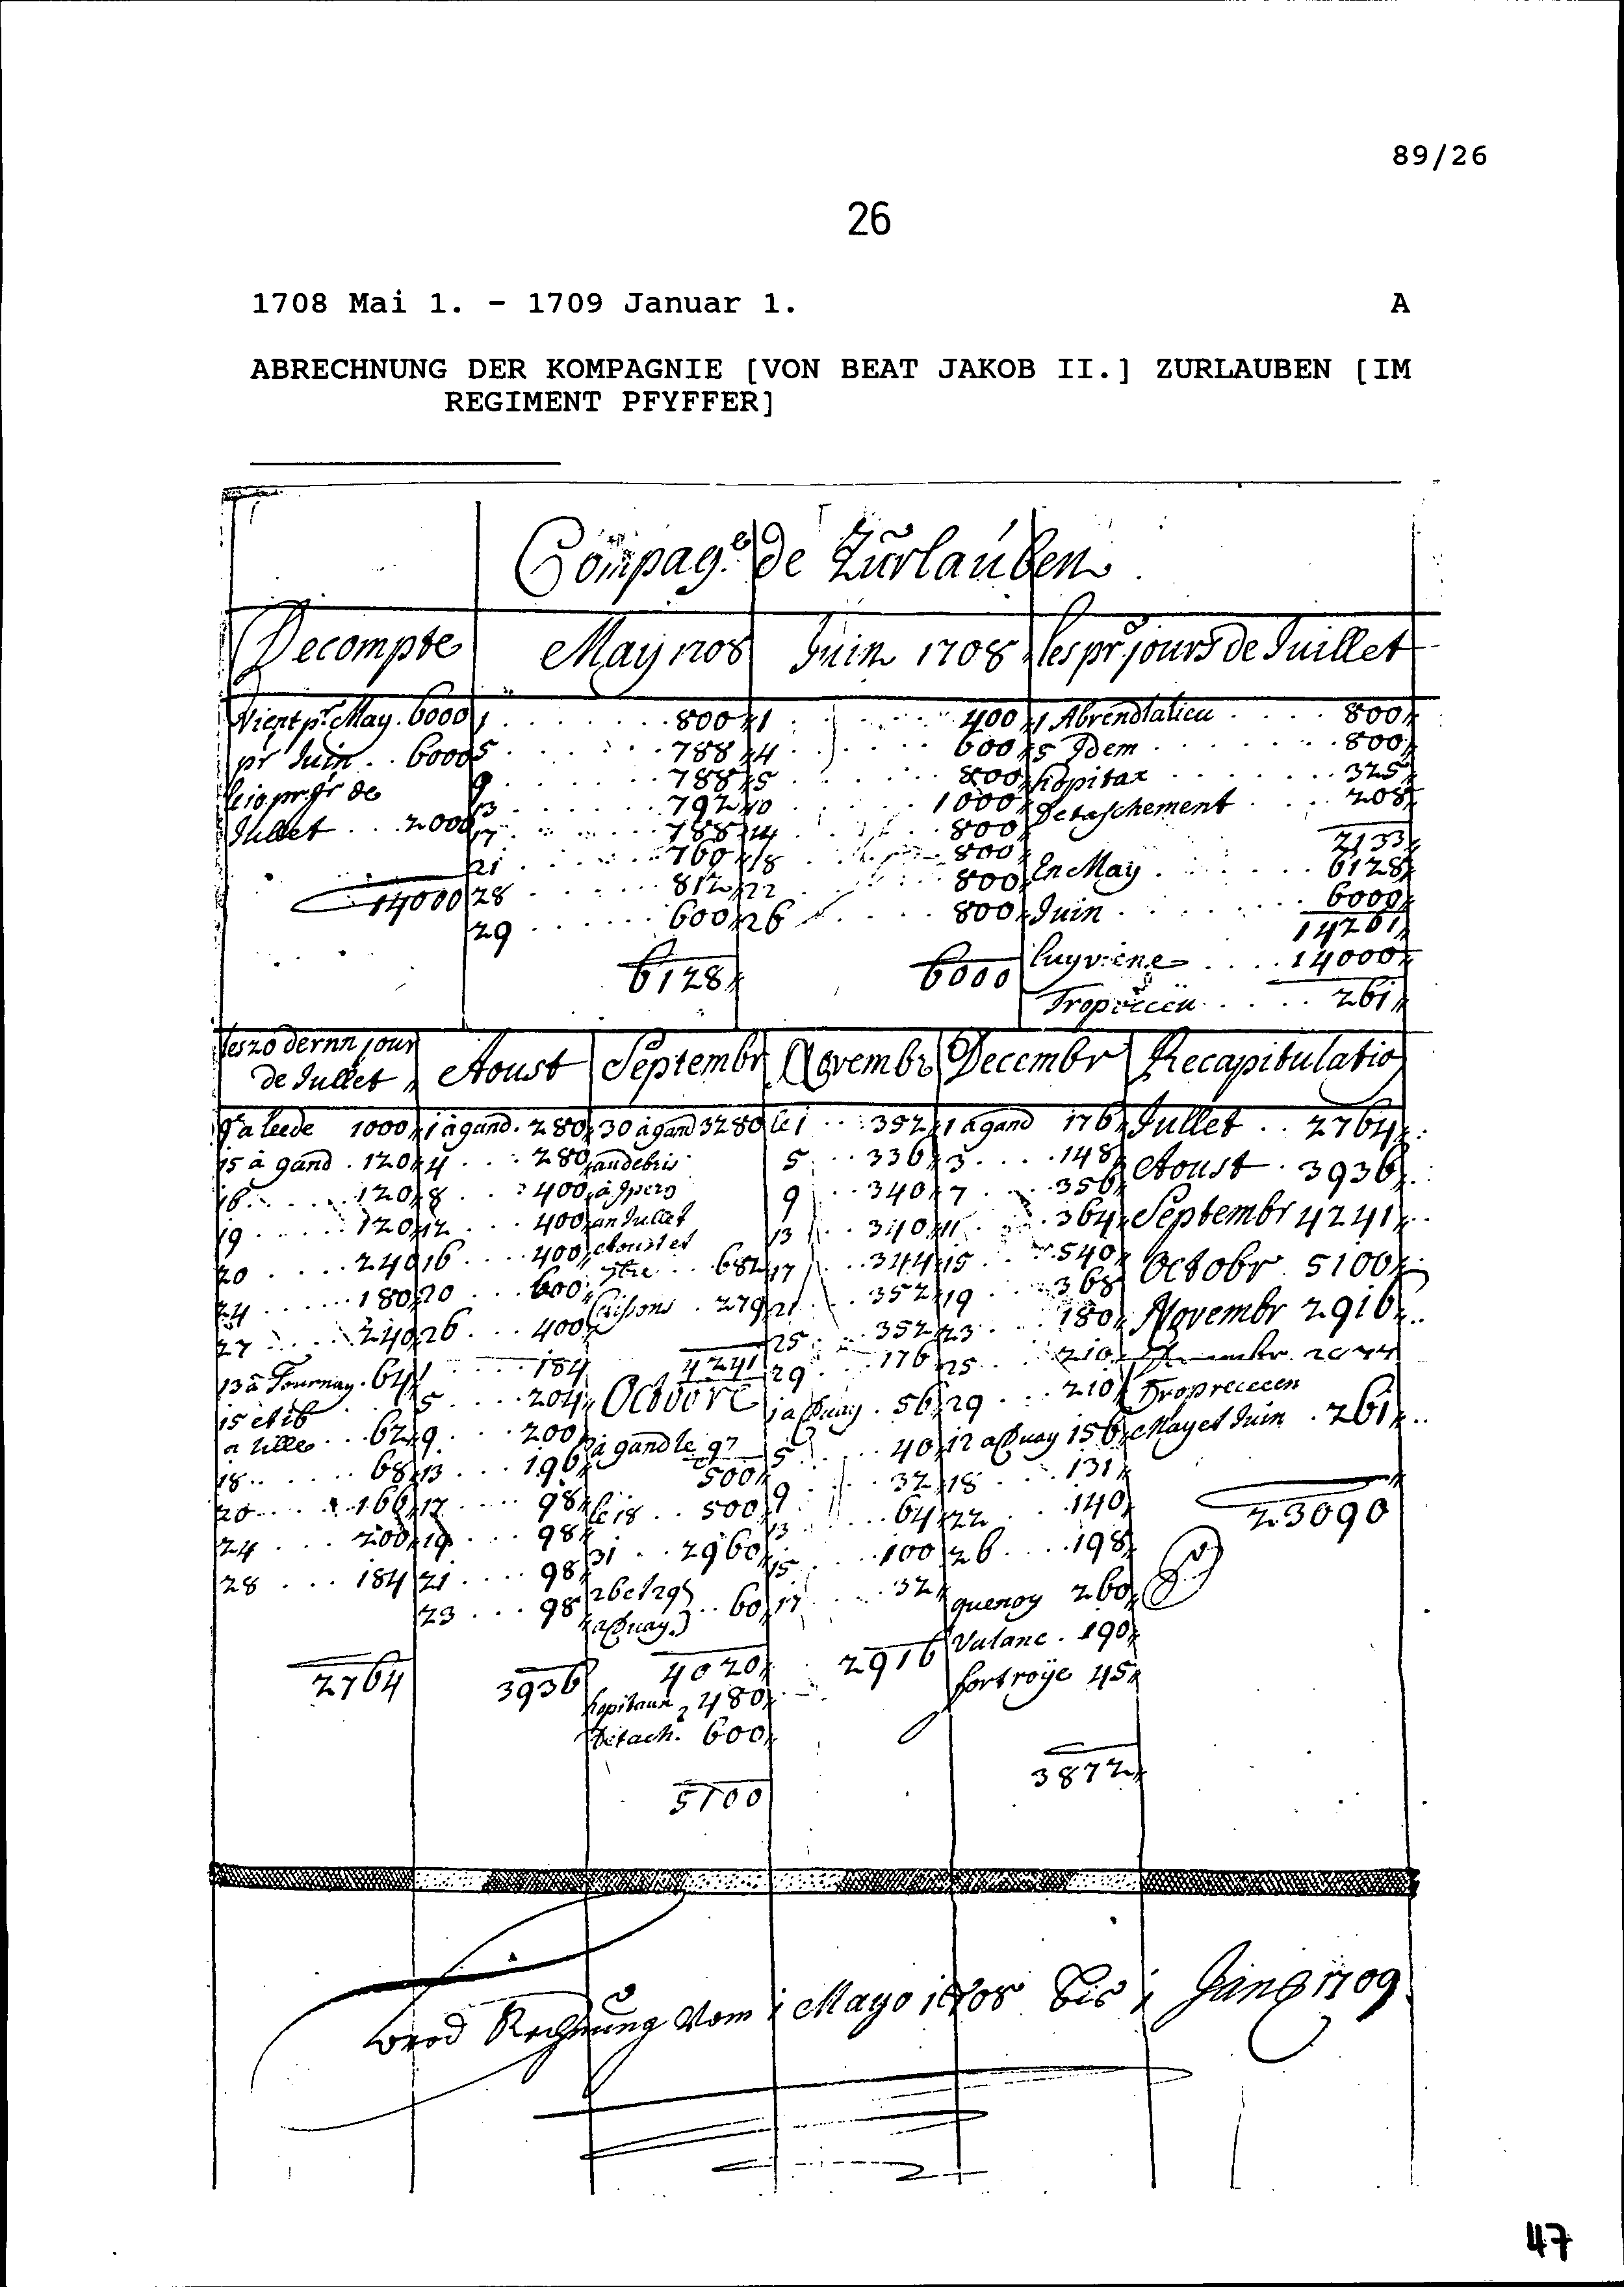 89/26
26
1708 Mai 1. - 1709 Januar 1. A
ABRECHNUNG DER KOMPAGNIE [VON BEAT JAKOB II.] ZURLAUBEN [IM
REGIMENT PFYFFER]
Compag.e de Zurlauben
Decompte
Vient pr. May . 6000
pr Juin . . 6000
Jullet . . 2000
14000
May 1708
1 800
5 788
9 788
13 792
17 788
21 760
28 812
29 600
6128
Juin 1708
1 400
4 600
5 800
10 1000
14 800
18 800
22 800
26 800
6000
les pr jours de Juillet
1 800
5 Idem 800
hopitax 325
Detaschement 208
2133
En May 6128
Juin 6000
14261
14000
261
les 20 dernn jour
de Jullet
1000
15 à gand . 120
16 120
19 120
20 240
24 180
27 240
13 à Tournay . 64
15 et 16
a lille . . 62
18 68
20 166
24 200
28 184
2764
Aoust
1 à gand . 280
4 280
8 400
12 400
16 400
20 600
26 400
1 184
5 204
9 200
13 196
17 98
19 98
21 98
23 98
3936
Septembr
30 à gand 3280
à Ipers
an Jullet
Aoust et
7bre . . 682
279
4241
Octobre
à gand le 9?
500
le 18 . . 500
31 . . 2960
26 et 29
a Duay . . 60
4020
hopitaux 480
Detach. 600
5100
Novembr
le 1 352
5 336
9 340
13 340
17 344
21 352
25 352
29 176
1 a Duay . 56
5 40
9 32
13 64
15 100
17 32
2916
Decembr
1 à gand 176
3 148
7 356
11 364
15 540
19 368
23 180
25 210
29 210
12 a Duay 156
18 131
22 140
26 198
quenoy 260
Valanc . 190
45
3872
Recapitulatio
Jullet . . 2764
Aoust . 3936
Septembr 4241
Octobr 5100
Novembr 2916
May et Juin . 261
23090
brod Rechnung Vom 1 Mayo 1708 bis 1 1709
47